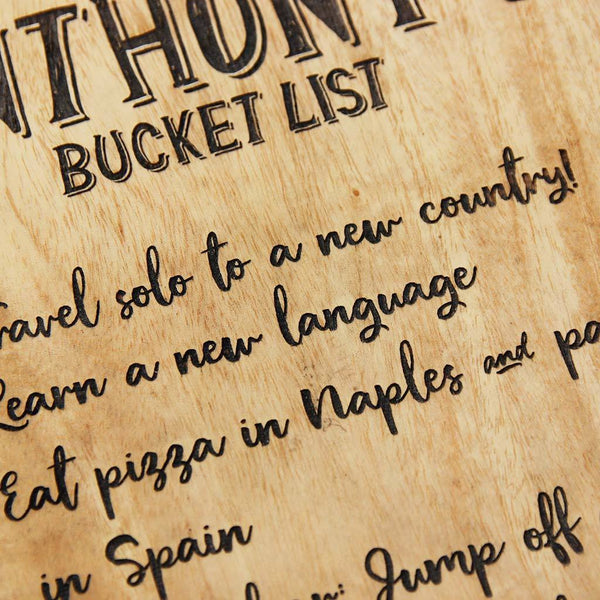 BUCKET LIST
Travel solo to a new country!
Learn a new language
Eat pizza in Naples and
in Spain
Jump off